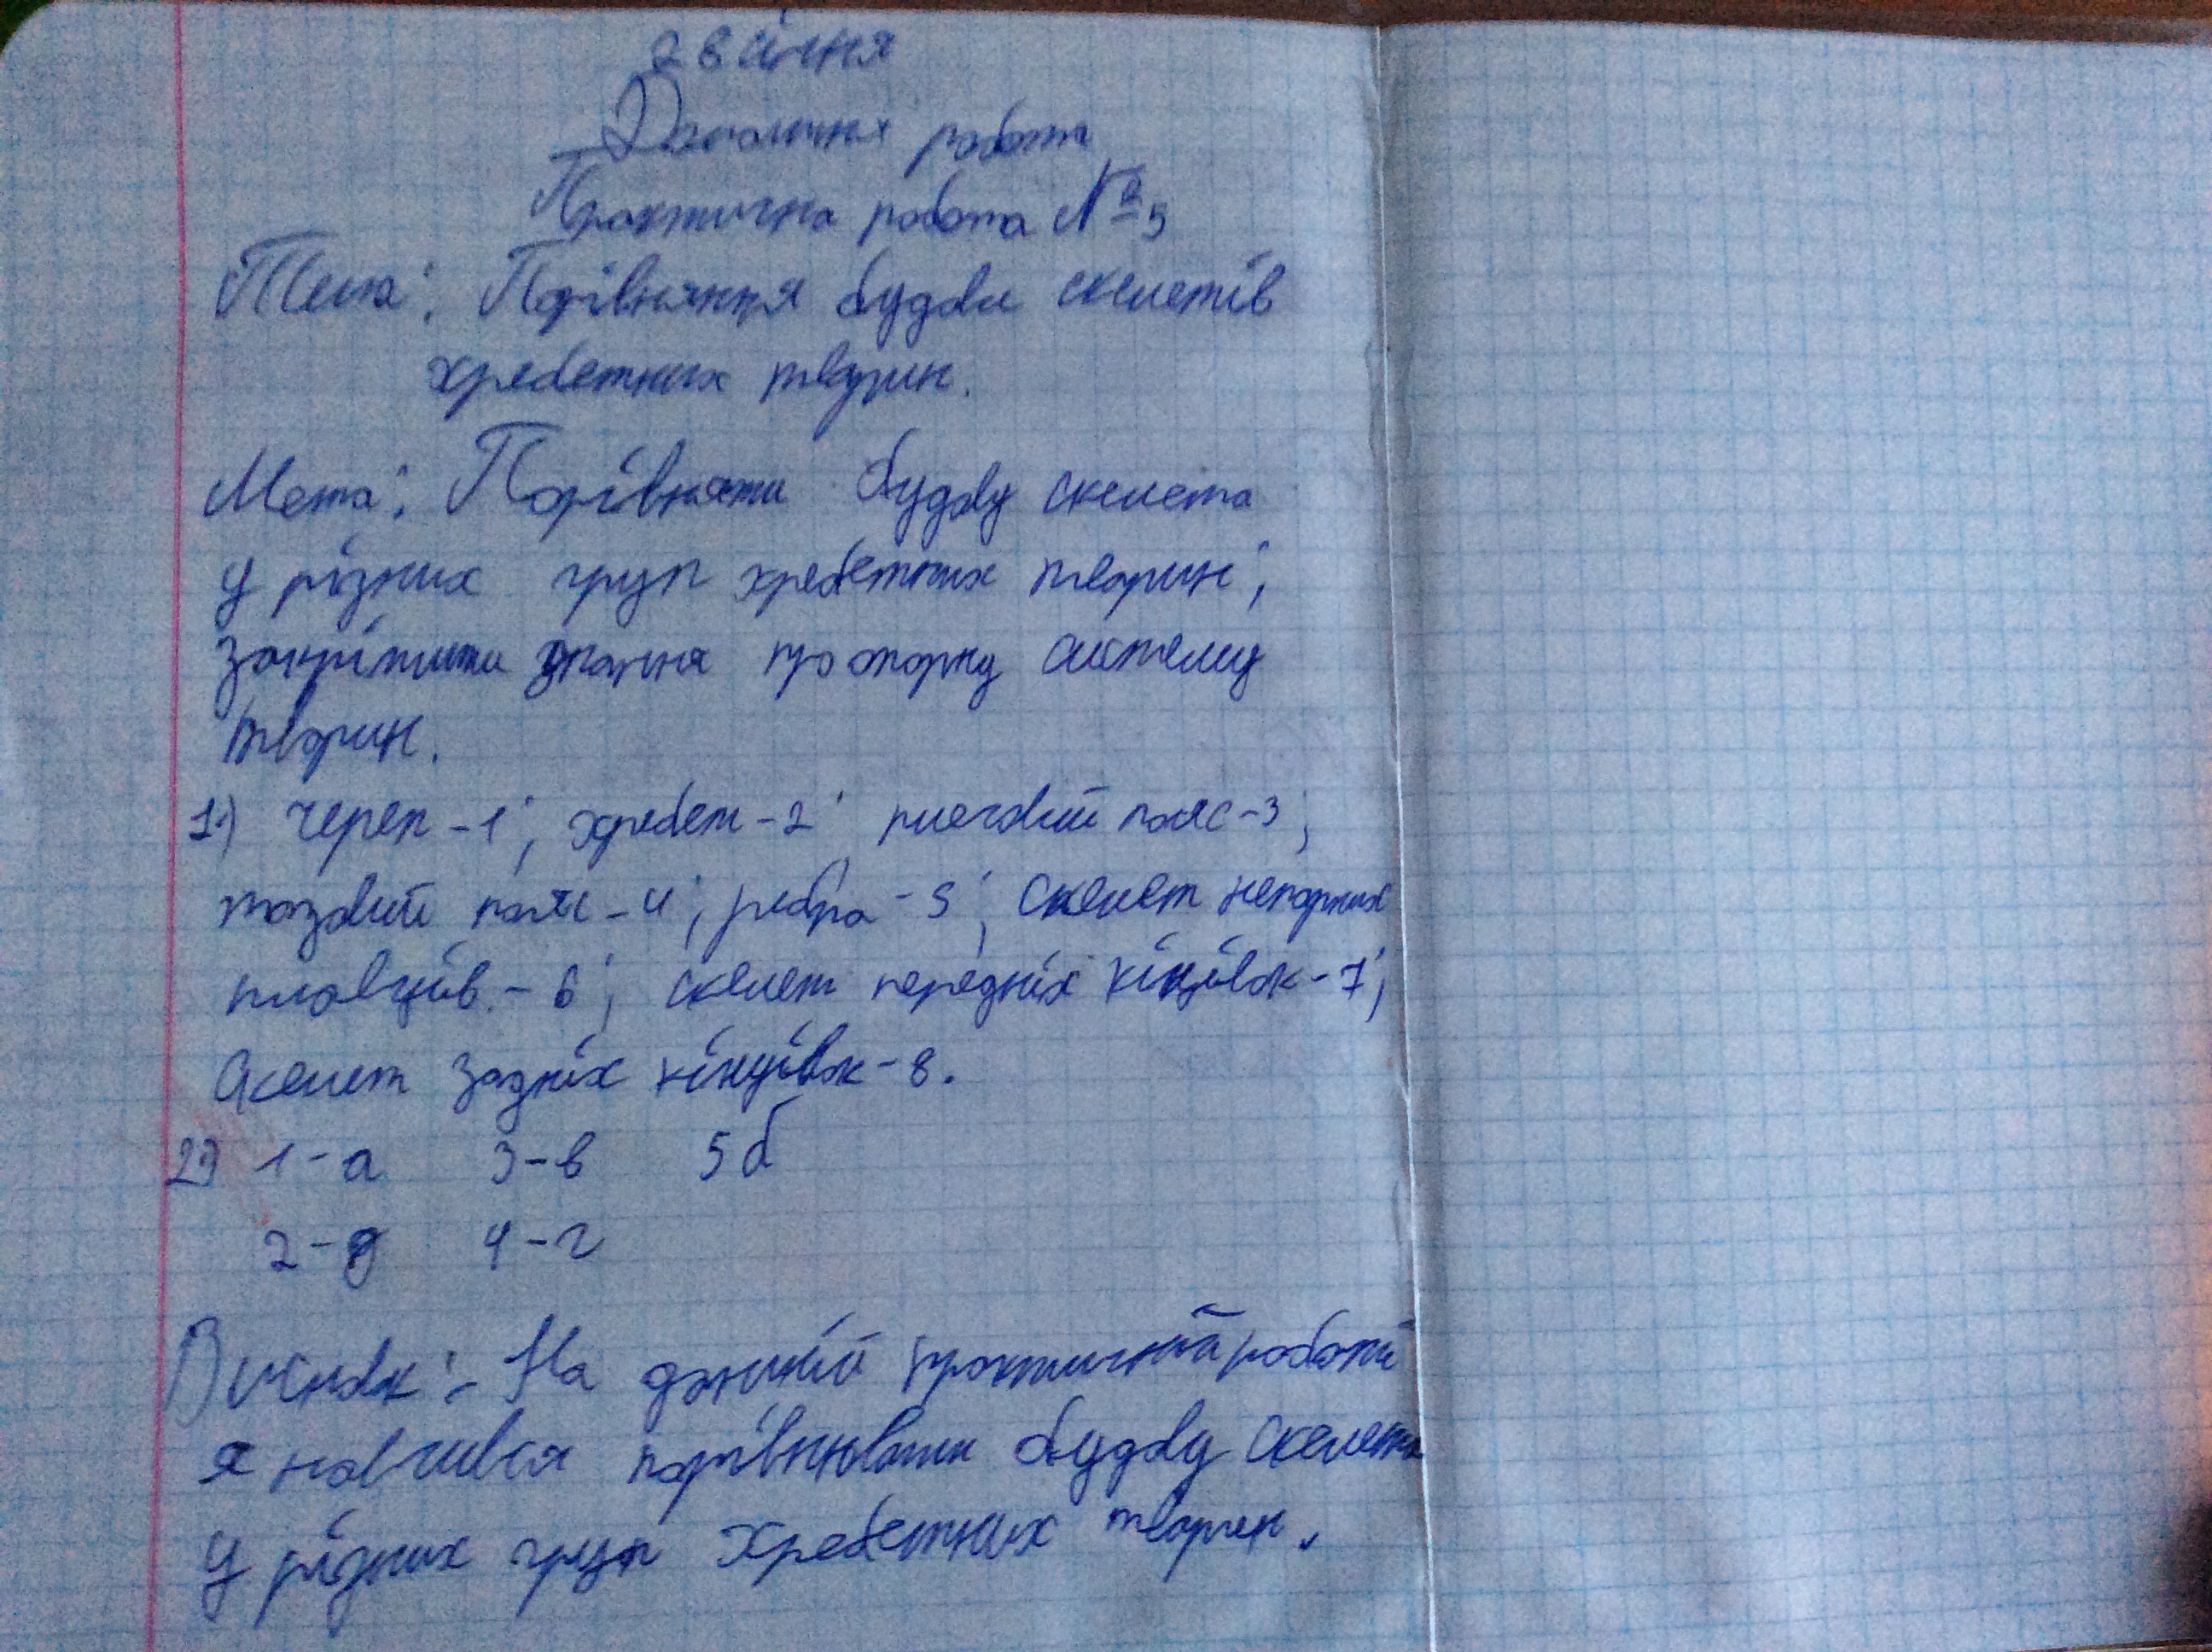 28 січня
Домашня робота
Практична робота №5
Тема: Порівняння будови скелетів
хребетних тварин.
Мета: Порівняти будову скелета
у різних груп хребетних тварин;
закріпити знання про опорну систему
тварин.
1) череп-1; хребет-2; плечовий пояс-3;
тазовий пояс-4; ребра-5; скелет непарних
плавців.-6; скелет передніх кінцівок-7;
скелет задніх кінцівок-8.
2) 1-а 3-в 5б
2-д 4-г
Висновок: На данній практичній роботі
я навчився порівнювати будову скелета
у різних груп хребетних тварин.